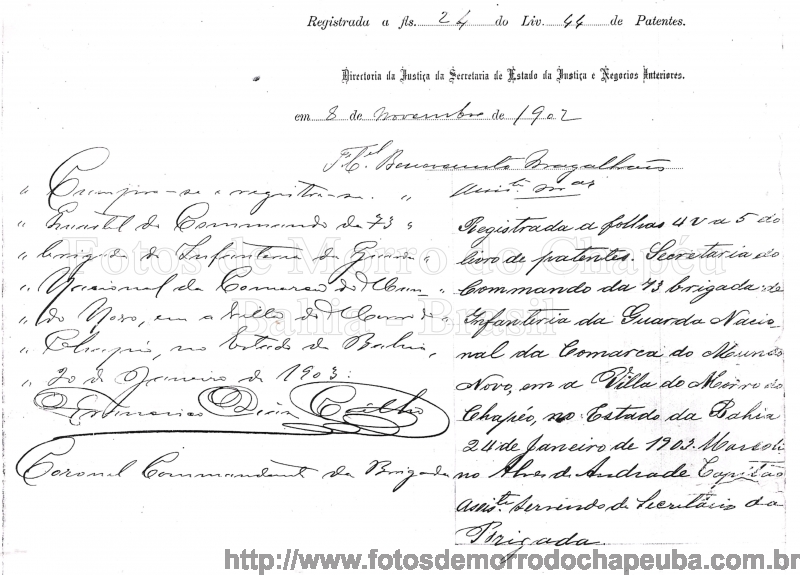 Registrada a fls. 24 do Liv. 44 de Patentes.
Directoria da Justiça da Secretaria de Estado da Justiça e Negocios Interiores.
em 8 de Novembro de 1902
Magalhães
" Cumpra-se e registra-se. "
" Quartel do Commando da 73 "
" brigada de Infanteria da Guarda "
" Nacional da Comarca do Mun "
" do Novo, em a Villa do Morro do "
" Chapéo, no Estado da Bahia, "
" 20 de Janeiro de 1903.
Coelho
Coronel Commandante da Brigada
Registrada a folhas 4 v a 5 do
livro de patentes. Secretaria do
Commando da 73 brigada de
Infanteria da Guarda Nacio-
nal da Comarca do Mundo
Novo, em a Villa do Morro do
Chapéo, no Estado da Bahia
24 de Janeiro de 1903. Marcoli
no Alves de Andrade Capitão
Assiste. servindo de Secretario da
Brigada.
Fotos de Morro do Chapéu
Bahia - Brasil
http://www.fotosdemorrodochapeuba.com.br